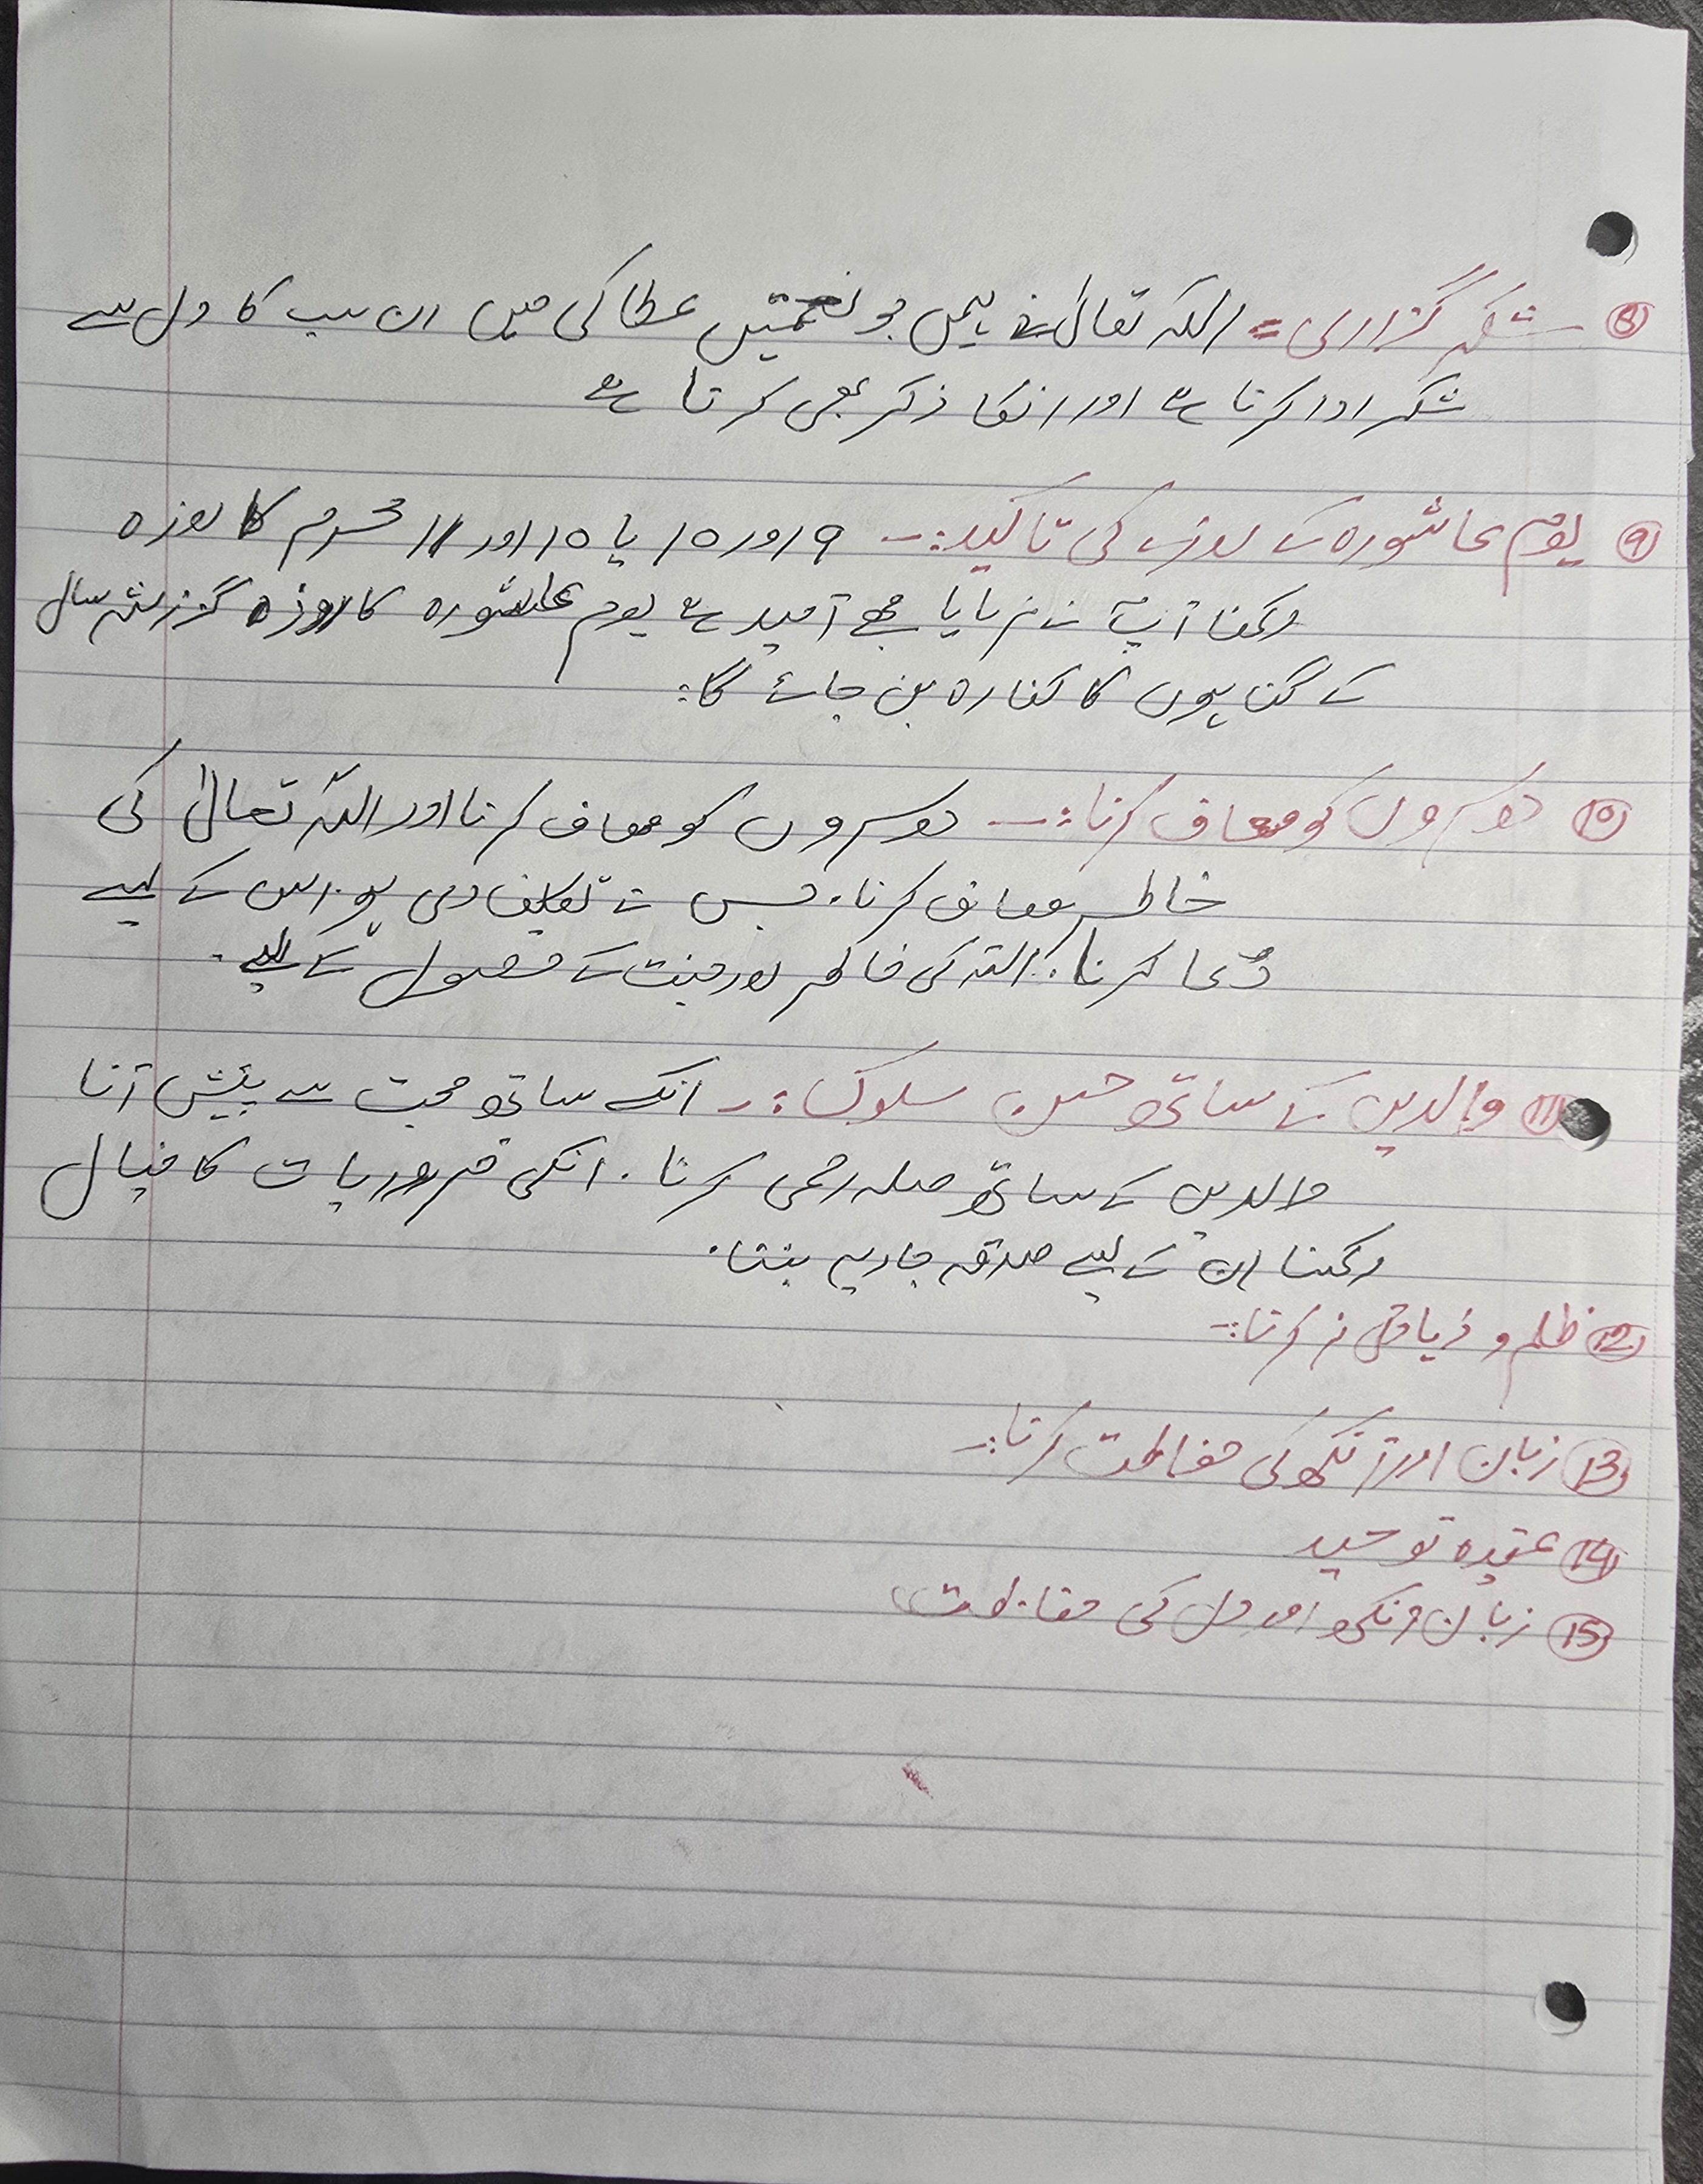 ⑧ شکر گزاری = اللہ تعالیٰ نے ہمیں جو نعمتیں عطا کی ہیں ان سب کا دل سے
شکر ادا کرنا ہے اور انکا ذکر بھی کرنا ہے
⑨ یوم عاشورہ کے روزے کی تاکید:- ۹ اور ۱۰ یا ۱۰ اور ۱۱ محرم کا روزہ
رکھنا آپؐ نے فرمایا مجھے امید ہے یوم عاشورہ کا روزہ گزرشتہ سال
کے گناہوں کا کفارہ بن جائے گا:
⑩ دوسروں کو معاف کرنا:- دوسروں کو معاف کرنا اور اللہ تعالیٰ کی
خاطر معاف کرنا. جس نے تکلیف دی ہو. اس کے لیے
دُعا کرنا. اللہ کی خاطر اور جنت کے حصول کے لیے.
⑪ والدین کے ساتھ حسن سلوک:- انکے ساتھ محبت سے پیش آنا
والدین کے ساتھ صلہ رحمی کرنا. انکی ضروریات کا خیال
رکھنا ان کے لیے صدقہ جاریہ بننا.
⑫ ظلم و زیادتی نہ کرنا:-
⑬ زبان اور آنکھ کی حفاظت کرنا:-
⑭ عقیدہ توحید
⑮ زبان آنکھ اور دل کی حفاظت